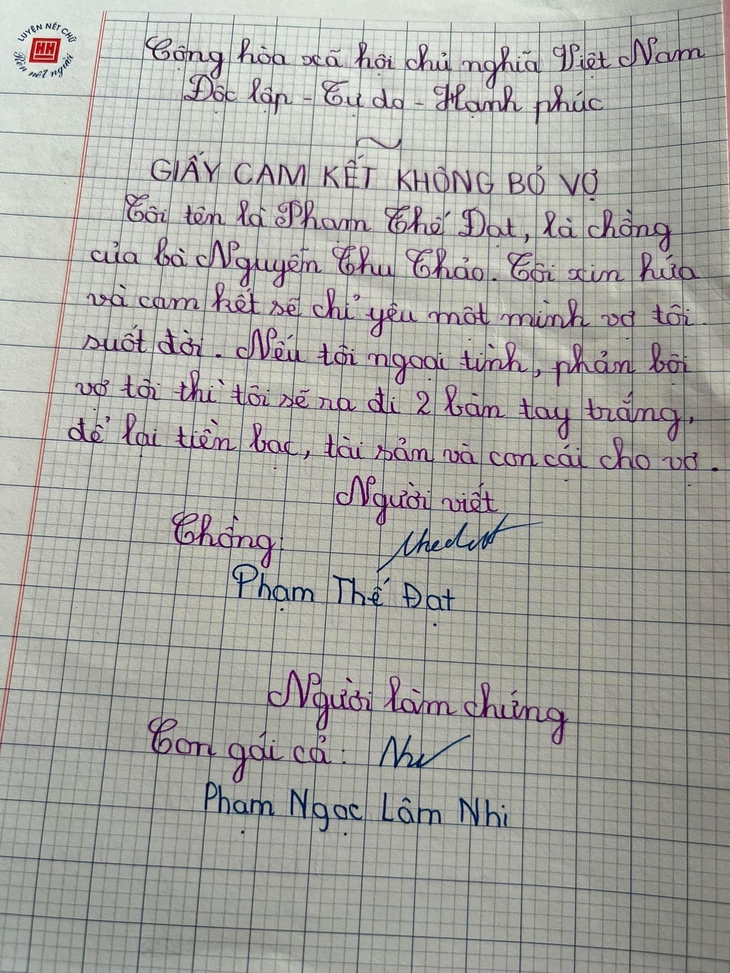 LUYỆN NẾT CHỮ
HH
Rèn nết người
Cộng hòa xã hội chủ nghĩa Việt Nam
Độc lập - Tự do - Hạnh phúc
GIẤY CAM KẾT KHÔNG BỎ VỢ
Tôi tên là Phạm Thế Đạt, là chồng
của bà Nguyễn Thu Thảo. Tôi xin hứa
và cam kết sẽ chỉ yêu một mình vợ tôi
suốt đời. Nếu tôi ngoại tình, phản bội
vợ tôi thì tôi sẽ ra đi 2 bàn tay trắng,
để lại tiền bạc, tài sản và con cái cho vợ.
Người viết
Chồng:
Phạm Thế Đạt
Người làm chứng
Con gái cả: Nhi
Phạm Ngọc Lâm Nhi